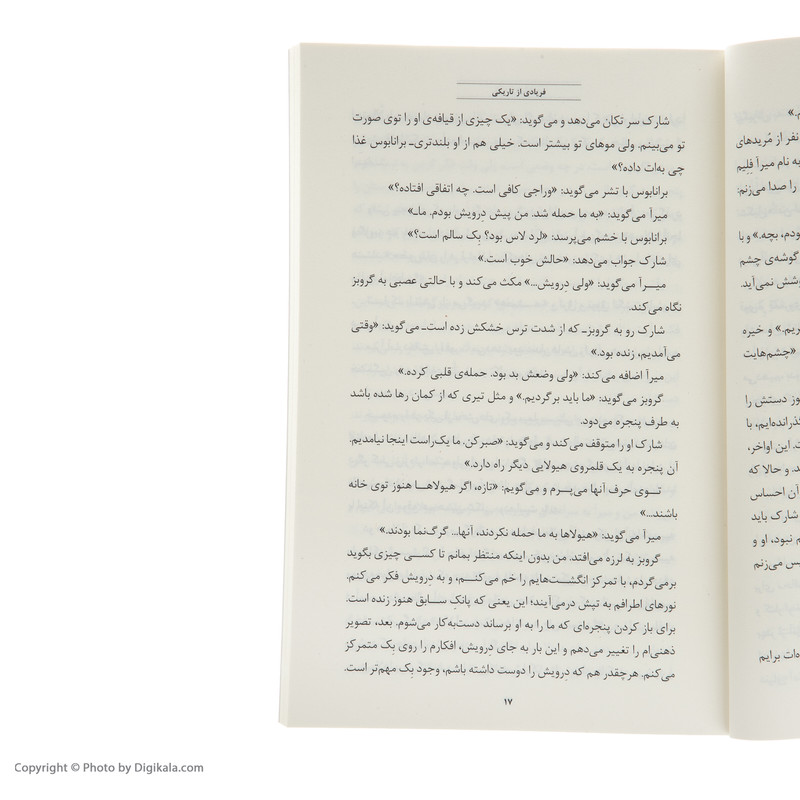 فریادی از تاریکی
شارک سر تکان می‌دهد و می‌گوید: «یک چیزی از قیافه‌ی او را توی صورت
تو می‌بینم. ولی موهای تو بیشتر است. خیلی هم از او بلندتری‌ـ برانابوس غذا
چی به‌ات داده؟»
برانابوس با تشر می‌گوید: «وراجی کافی است. چه اتفاقی افتاده؟»
میرآ می‌گوید: «به ما حمله شد. من پیش دِرویش بودم. ماـ»
برانابوس با خشم می‌پرسد: «لرد لاس بود؟ بِک سالم است؟»
شارک جواب می‌دهد: «حالش خوب است.»
میـرآ می‌گوید: «ولی درویش...» مکث می‌کند و با حالتی عصبی به گروبز
نگاه می‌کند.
شارک رو به گروبزـ که از شدت ترس خشکش زده است‌ـ می‌گوید: «وقتی
می‌آمدیم، زنده بود.»
میرآ اضافه می‌کند: «ولی وضعش بد بود. حمله‌ی قلبی کرده.»
گروبز می‌گوید: «ما باید برگردیم.» و مثل تیری که از کمان رها شده باشد
به طرف پنجره می‌دود.
شارک او را متوقف می‌کند و می‌گوید: «صبر کن. ما یک‌راست اینجا نیامدیم.
آن پنجره به یک قلمروی هیولایی دیگر راه دارد.»
تـوی حرف آنها می‌پـرم و می‌گویم: «تازه، اگر هیولاهـا هنوز توی خانه
باشند...»
میرآ می‌گوید: «هیولاها به ما حمله نکردند، آنها... گرگ‌نما بودند.»
گروبز به لرزه می‌افتد. من بدون اینکه منتظر بمانم تا کسـی چیزی بگوید
برمی‌گردم، با تمرکز انگشت‌هایم را خم می‌کنـم، و به دِرویش فکر می‌کنم.
نورهای اطرافم به تپش درمی‌آیند؛ این یعنی که پانکِ سـابق هنوز زنده است.
برای باز کردن پنجره‌ای که ما را به او برساند دست‌به‌کار می‌شوم. بعد، تصویر
ذهنی‌ام را تغییر می‌دهم و این بار به جای دِرویش، افکارم را روی بِک متمرکز
می‌کنم. هرچقدر هم که دِرویش را دوست داشته باشم، وجود بِک مهم‌تر است.
۱۷
م.»
نفر از مُریدهای
به نام میرآ فلیم
را صدا می‌زنم:
بودم، بچه.» و با
گوشه‌ی چشم
وشش نمی‌آید.
ریم.» و خیره
«چشم‌هایت
وز دستش را
گذرانده‌ایم، با
ت. این اواخر،
د. و حالا که
آن احساس
شارک باید
م نبود، او و
یس می‌زنم
ه‌ات برایم
Copyright © Photo by Digikala.com